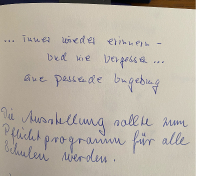 ... immer wieder erinnern –
und nie vergessen ...
eine passende Umgebung
Die Ausstellung sollte zum
Pflichtprogramm für alle
Schulen werden.